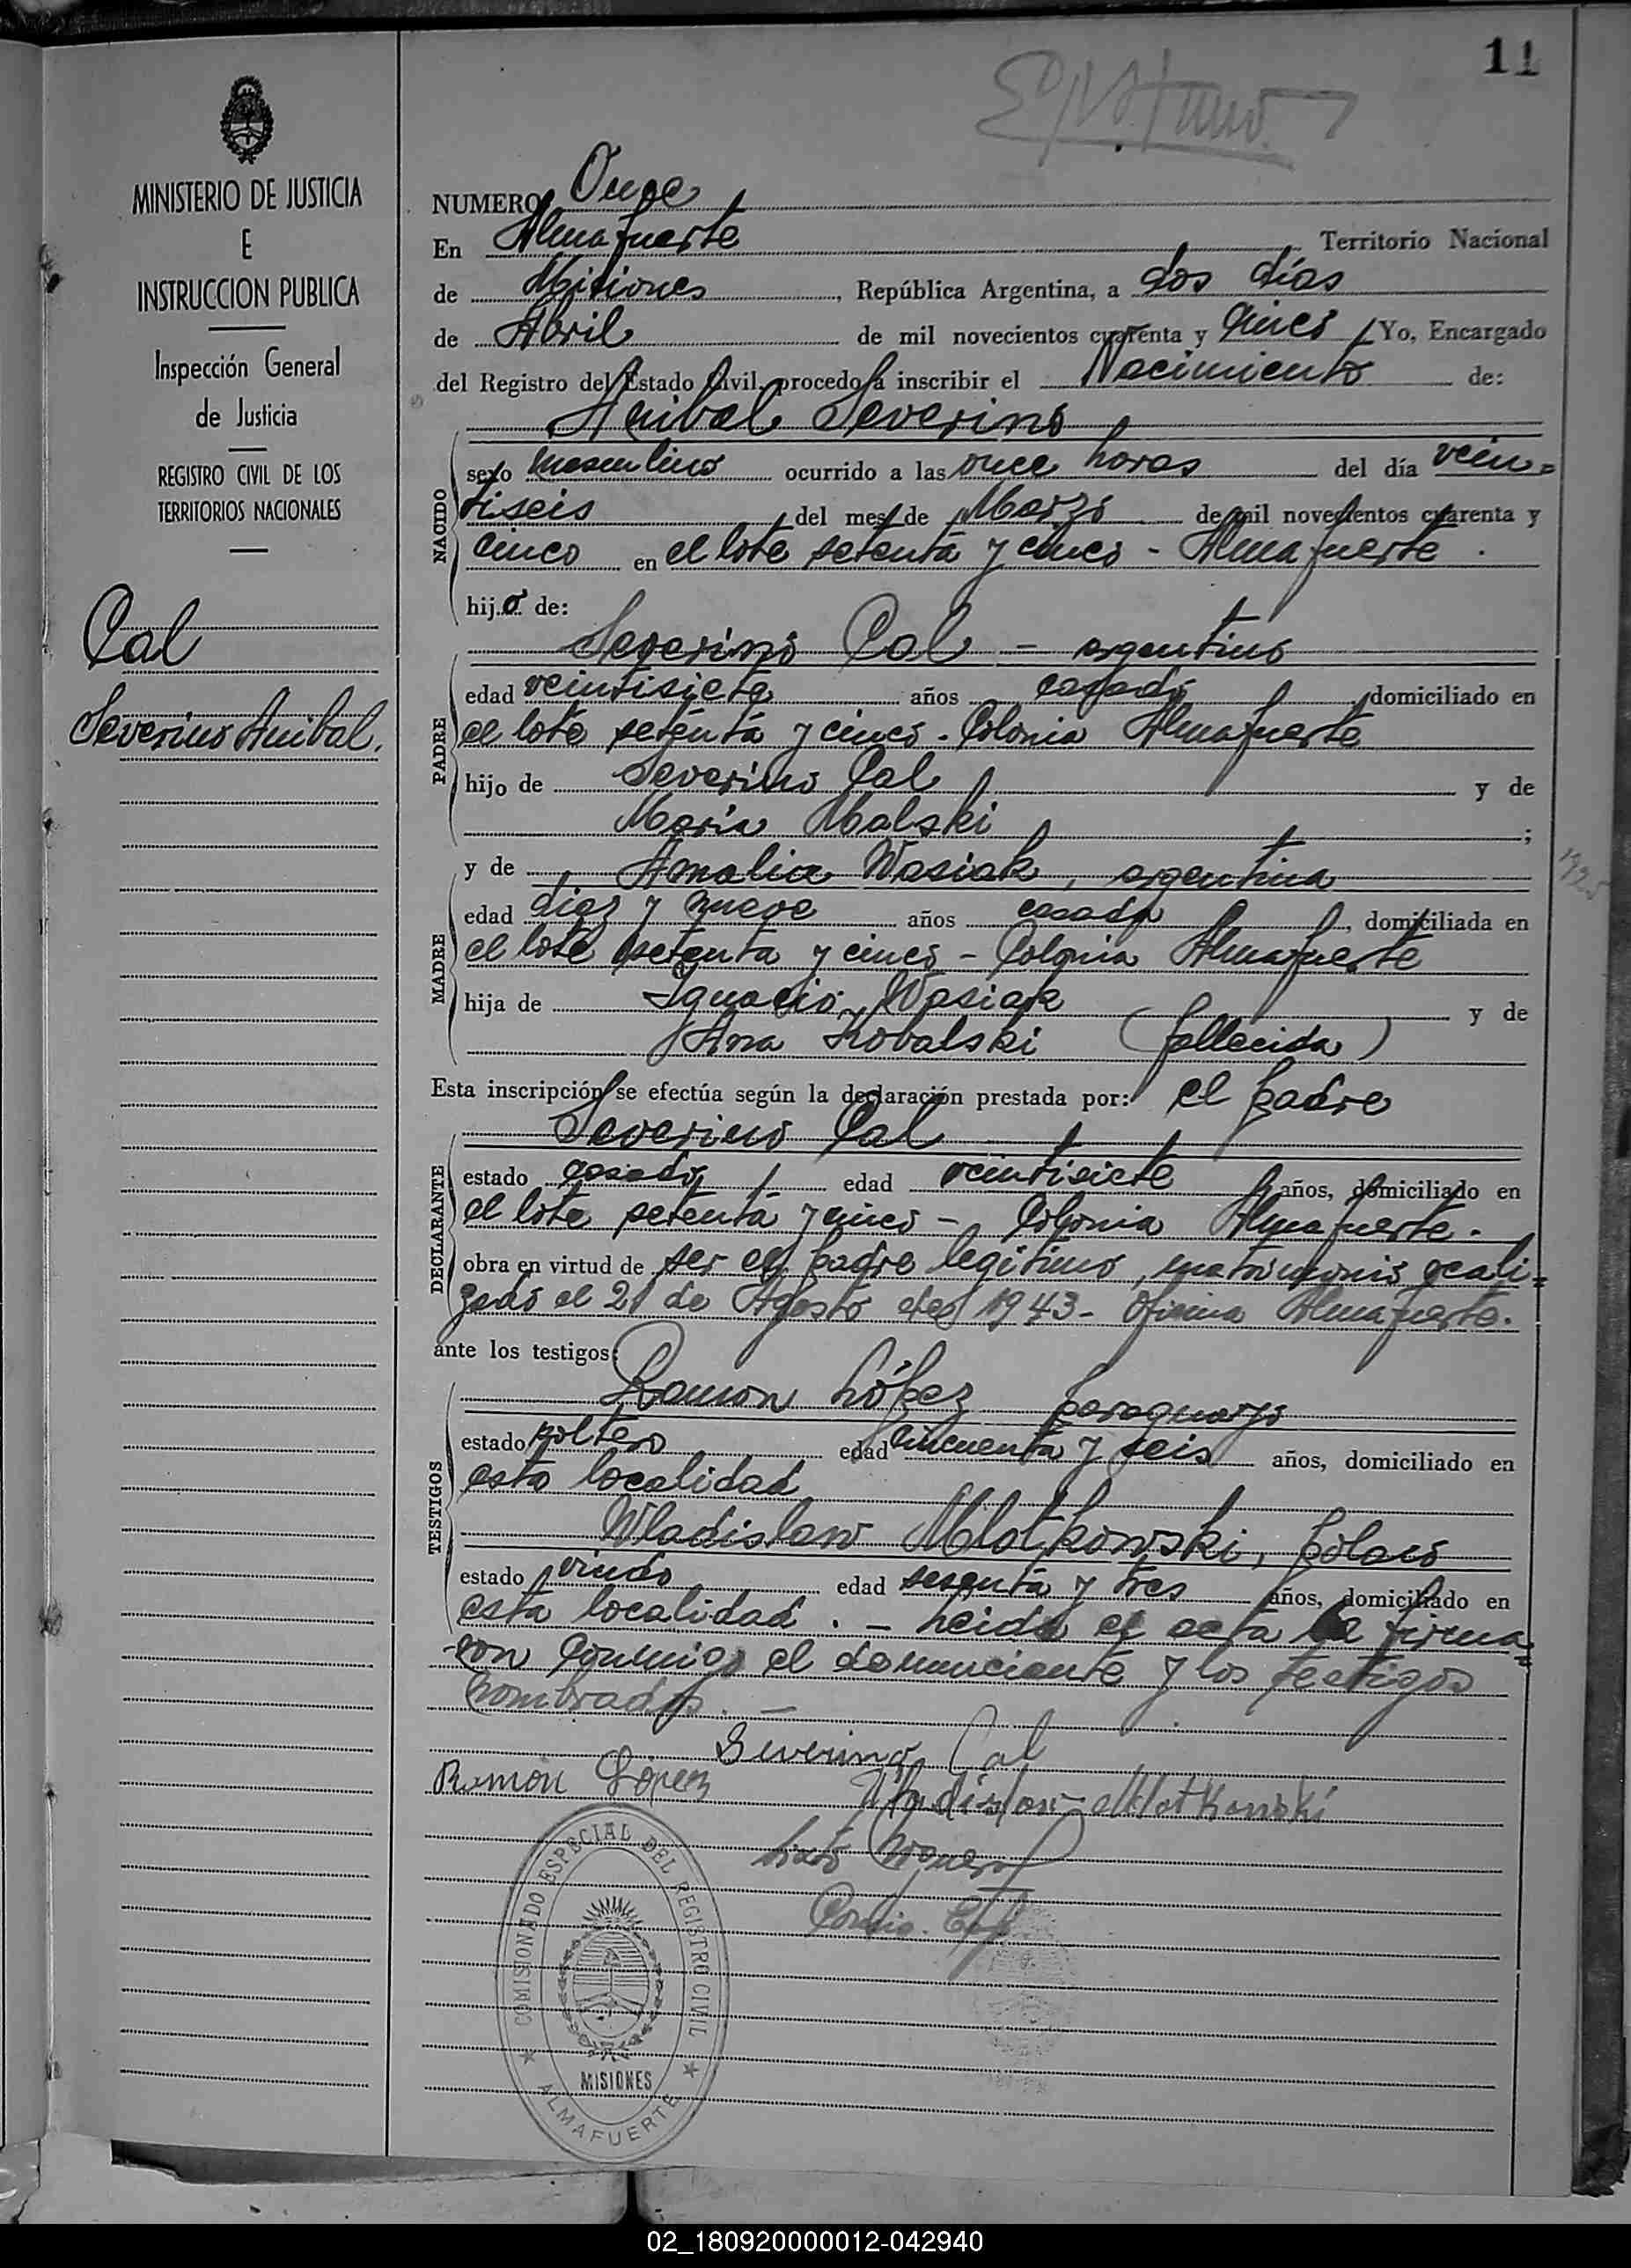 11
MINISTERIO DE JUSTICIA
E
INSTRUCCION PUBLICA
Inspección General
de Justicia
REGISTRO CIVIL DE LOS
TERRITORIOS NACIONALES
Cal
Severino Anibal.
NUMERO Once
En Almafuerte Territorio Nacional
de Misiones, República Argentina, a dos días
de Abril de mil novecientos cuarenta y cinco Yo, Encargado
del Registro del Estado Civil, procedo a inscribir el Nacimiento de:
Anibal Severino
NACIDO
sexo masculino ocurrido a las once horas del día vein=
tiseis del mes de Marzo de mil novecientos cuarenta y
cinco en el lote setenta y cinco - Almafuerte.
hijo de:
Severino Cal - argentino
PADRE
edad veintisiete años casado domiciliado en
el lote setenta y cinco - Colonia Almafuerte
hijo de Severino Cal y de
Maria Malski ;
y de Amalia Wasiak, argentina
MADRE
edad diez y nueve años casada, domiciliada en
el lote setenta y cinco - Colonia Almafuerte
hija de Ignacio Wasiak y de
Ana Kovalski (fallecida)
Esta inscripción se efectúa según la declaración prestada por: el padre
Severino Cal
DECLARANTE
estado casado edad veintisiete años, domiciliado en
el lote setenta y cinco - Colonia Almafuerte.
obra en virtud de ser el padre legitimo, matrimonio reali=
zado el 21 de Agosto de 1943 - Oficina Almafuerte.
ante los testigos:
TESTIGOS
Ramon López paraguayo
estado soltero edad cincuenta y seis años, domiciliado en
esta localidad
Wladislaw Mlotkowski, polaco
estado viudo edad sesenta y tres años, domiciliado en
esta localidad. - Leida el acta la firma=
ron conmigo el denunciante y los testigos
nombrados. -
Severino Cal
Ramón López
Wladislaw Mlotkowski
COMISIONADO ESPECIAL DEL REGISTRO CIVIL
MISIONES
ALMAFUERTE
02_180920000012-042940